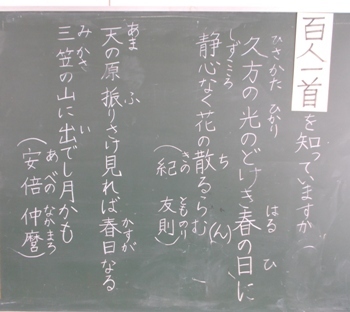 百人一首を知っていますか
久方の光のどけき春の日に
ひさかた ひかり はる ひ
静心なく花の散るらむ(ん)
しずこころ ち
(紀 友則)
きの とものり
天の原 振りさけ見れば春日なる
あま ふ かすが
三笠の山に出でし月かも
みかさ い
(安倍 仲麿)
あべの なかまろ